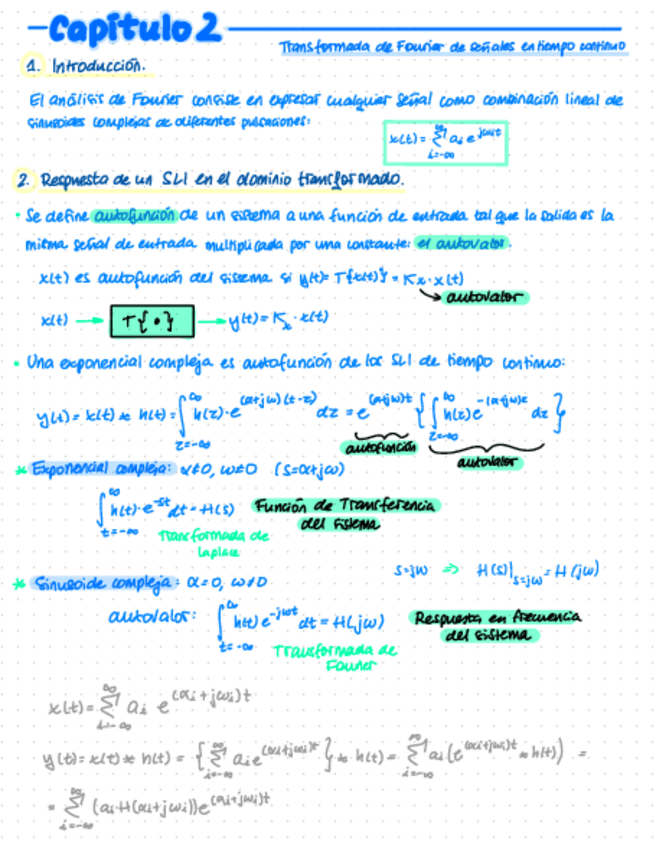 Capítulo 2
Transformada de Fourier de señales en tiempo continuo
1. Introducción.
El análisis de Fourier consiste en expresar cualquier señal como combinación lineal de
sinusoides complejas de diferentes pulsaciones:
x(t) = ∑_{i=-∞}^{∞} a_i e^{jω_i t}
2. Respuesta de un SLI en el dominio transformado.
· Se define autofunción de un sistema a una función de entrada tal que la salida es la
misma señal de entrada multiplicada por una constante: el autovalor.
x(t) es autofunción del sistema si y(t) = T{x(t)} = K_x · x(t)
autovalor
x(t) → T{•} → y(t) = K_x · x(t)
· Una exponencial compleja es autofunción de los SLI de tiempo continuo:
y(t) = x(t) * h(t) = ∫_{τ=-∞}^{∞} h(τ) · e^{(α+jω)(t-τ)} dτ = e^{(α+jω)t} { ∫_{τ=-∞}^{∞} h(τ) e^{-(α+jω)τ} dτ }
autofunción autovalor
* Exponencial compleja: α≠0, ω≠0 (s=α+jω)
∫_{t=-∞}^{∞} h(t) · e^{-st} dt = H(s) Función de Transferencia
del sistema
Transformada de
Laplace
s=jω ⇒ H(s)|_{s=jω} = H(jω)
* Sinusoide compleja: α=0, ω≠0
autovalor: ∫_{t=-∞}^{∞} h(t) e^{-jωt} dt = H(jω) Respuesta en frecuencia
del sistema
Transformada de
Fourier
x(t) = ∑_{i=-∞}^{∞} a_i e^{(α_i+jω_i)t}
y(t) = x(t) * h(t) = { ∑_{i=-∞}^{∞} a_i e^{(α_i+jω_i)t} } * h(t) = ∑_{i=-∞}^{∞} a_i (e^{(α_i+jω_i)t} * h(t)) =
= ∑_{i=-∞}^{∞} (a_i · H(α_i+jω_i)) e^{(α_i+jω_i)t}